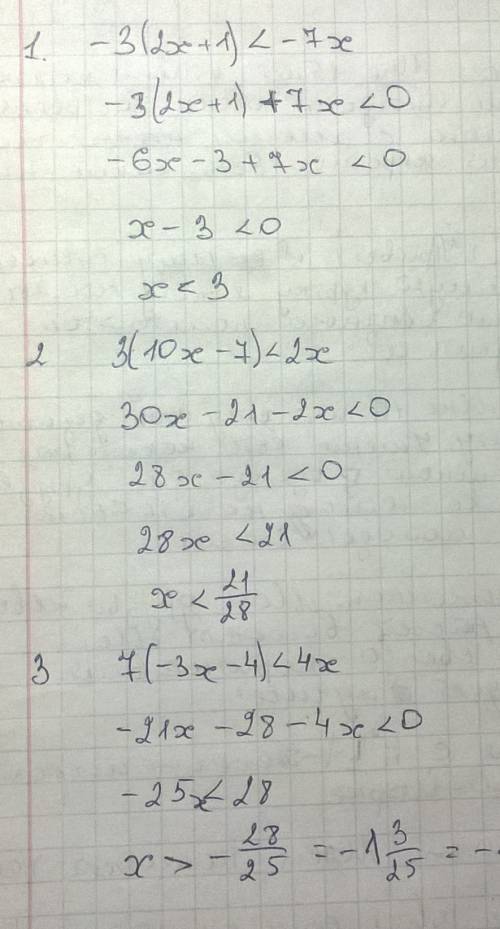 1. -3(2x+1) < -7x
-3(2x+1)+7x<0
-6x-3+7x <0
x-3 <0
x<3
2 3(10x-7)<2x
30x-21-2x<0
28x-21<0
28x<21
x<21/28
3 7(-3x-4)<4x
-21x-28-4x<0
-25x<28
x>-28/25=-1 3/25=-